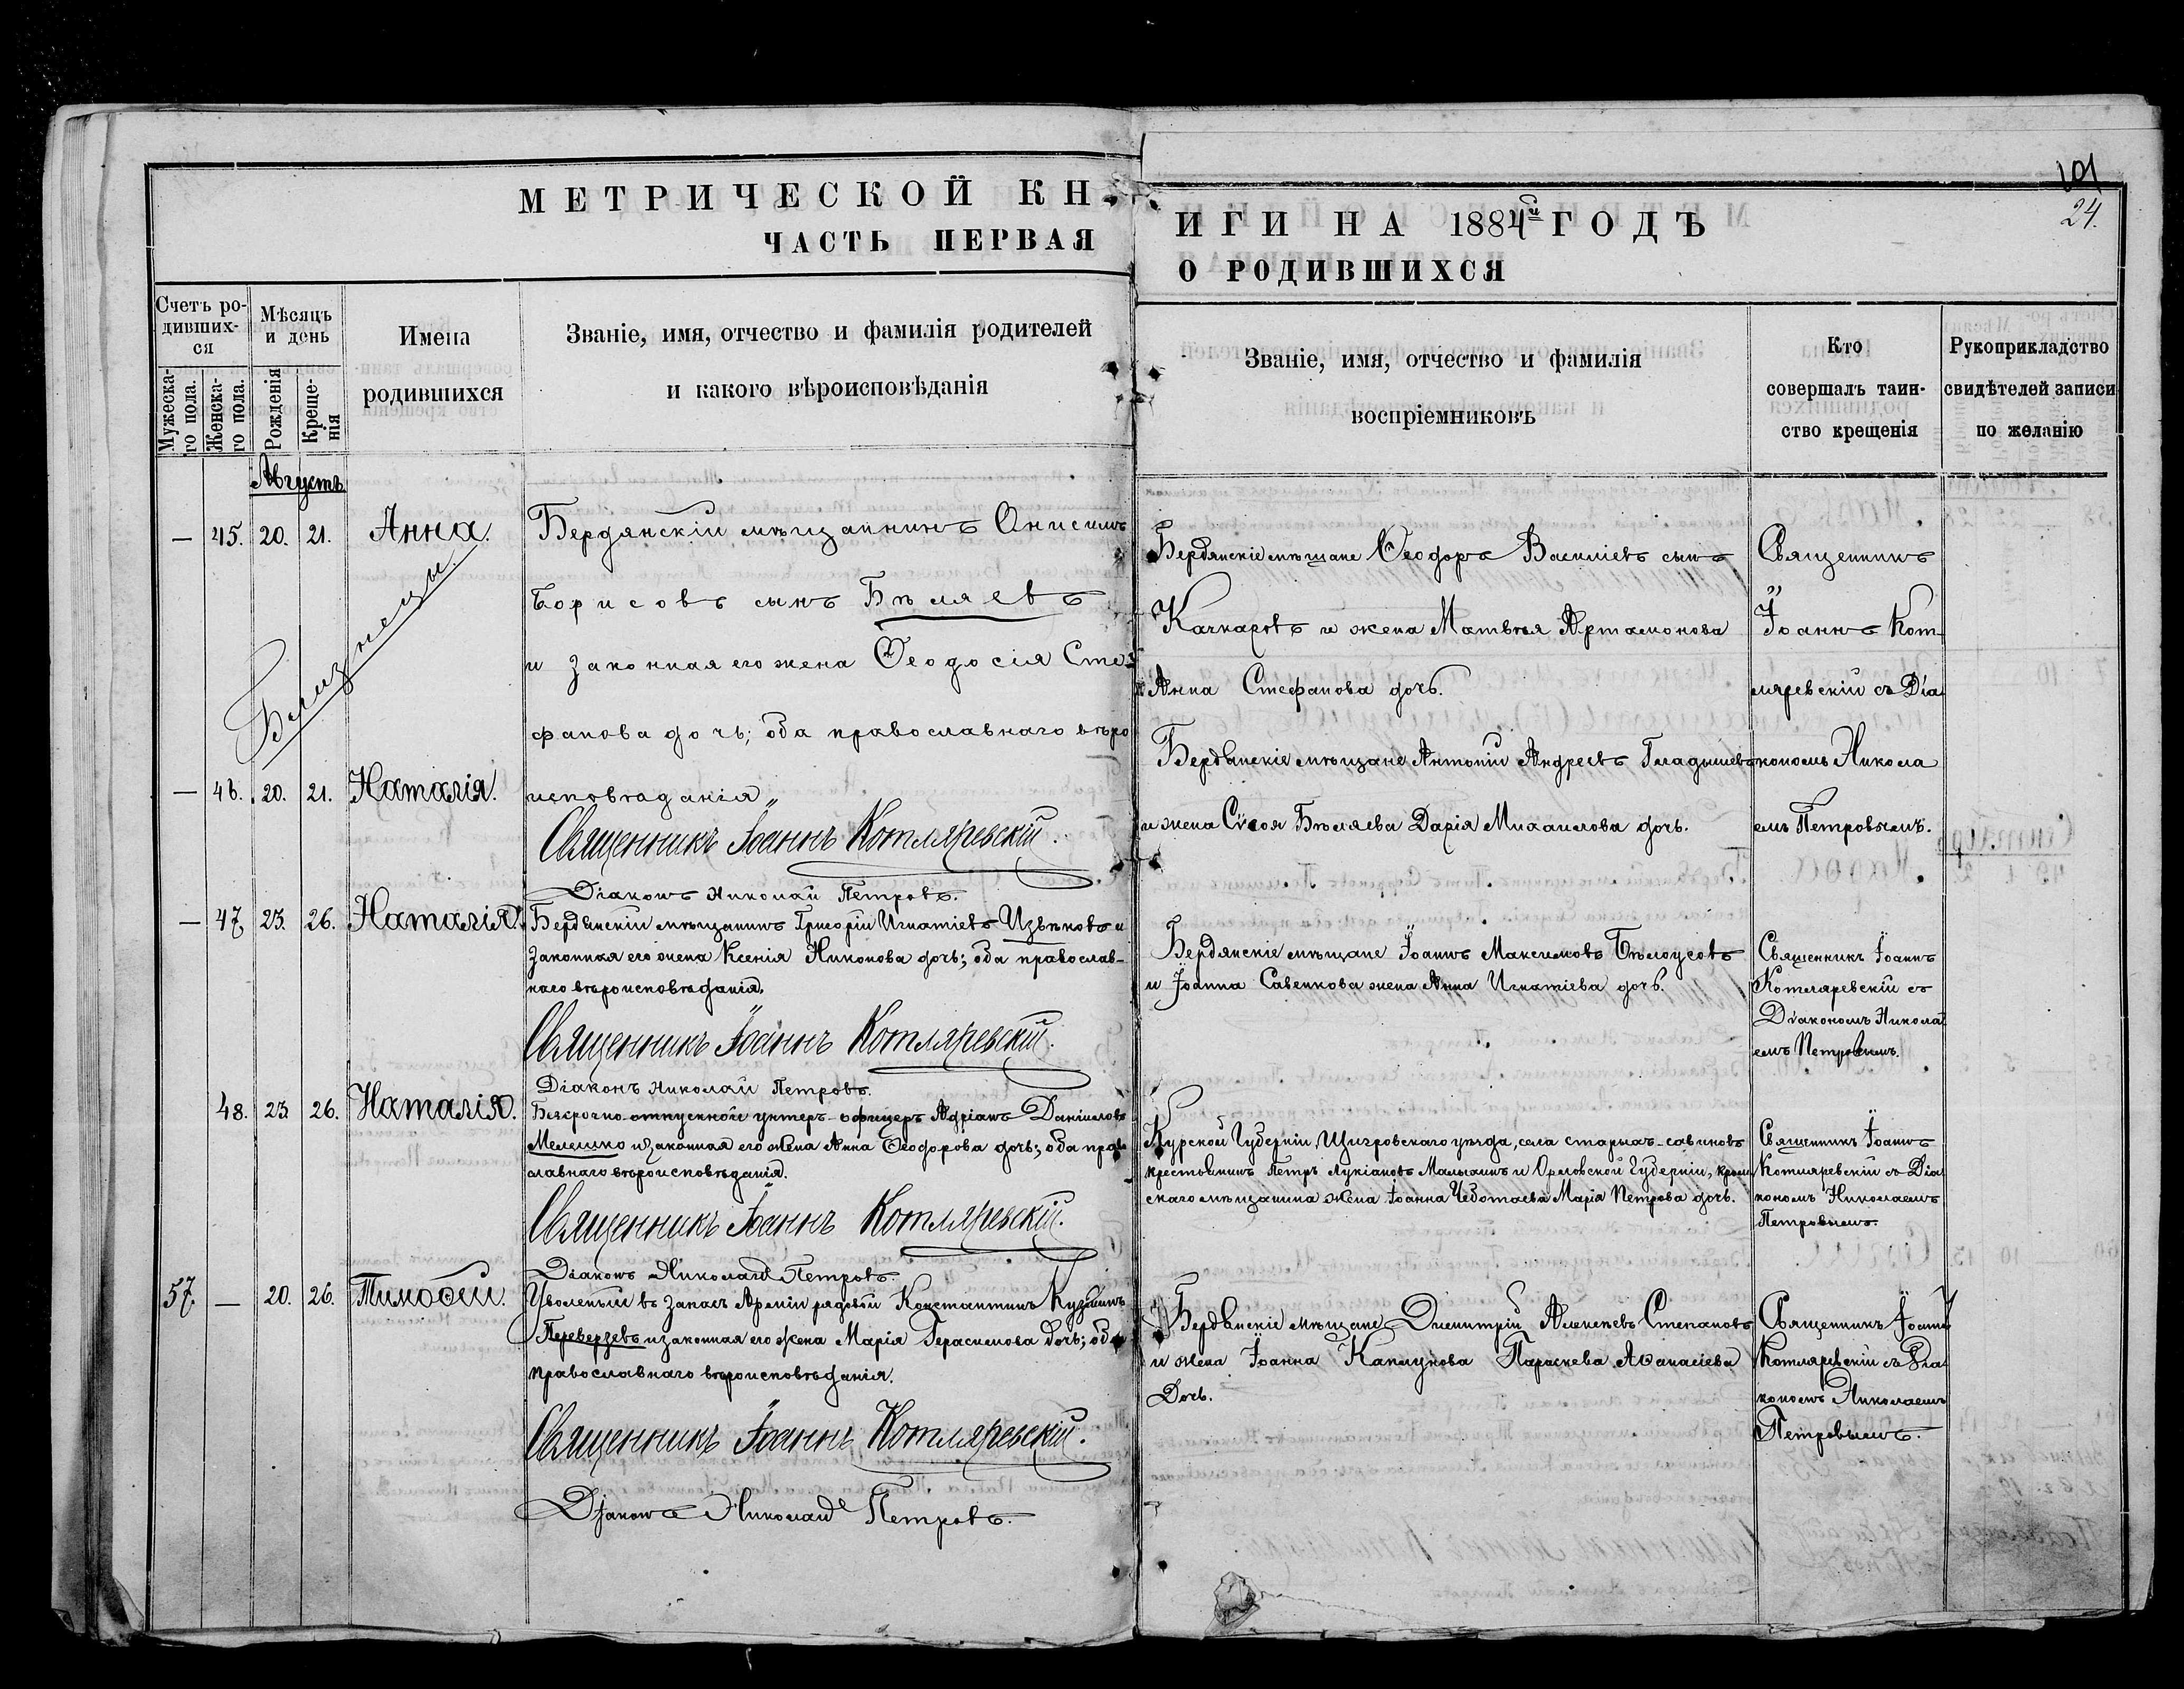 МЕТРИЧЕСКОЙ КН
ЧАСТЬ ПЕРВАЯ
Счетъ ро-
дивших-
ся
Мѣсяцъ
и день
Имена
родившихся
Званіе, имя, отчество и фамилія родителей
и какого вѣроисповѣданія
Мужеска-
го пола.
Женска-
го пола.
Рожденія
Креще-
нія
Августъ
— 45. 20. 21. Анна.
Бердянскій мѣщанинъ Онисимъ
Борисовъ сынъ Бѣляевъ
и законная его жена Ѳеодосія Сте-
фанова дочь; оба православнаго вѣро
исповѣданія
Близнецы.
— 46. 20. 21. Наталія.
Священникъ Іоаннъ Котляревскій.
Діаконъ Николай Петровъ.
— 47. 23. 26. Наталія.
Бердянскій мѣщанинъ Григорій Игнатіевъ Извѣковъ и
законная его жена Ксенія Никонова дочь; оба православ-
наго вѣроисповѣданія.
Священникъ Іоаннъ Котляревскій.
Діаконъ Николай Петровъ.
48. 23 26. Наталія.
Безсрочно-отпускной унтеръ-офицеръ Адріанъ Даніиловъ
Мелешко и законная его жена Анна Ѳеодорова дочь; оба право
славнаго вѣроисповѣданія.
Священникъ Іоаннъ Котляревскій.
Діаконъ Николай Петровъ.
57. — 20. 26. Тимоѳей.
Уволенный въ запасъ Арміи рядовой Константинъ Кузьминъ
Переверзевъ и законная его жена Марія Герасимова дочь; оба
православнаго вѣроисповѣданія.
Священникъ Іоаннъ Котляревскій.
Діаконъ Николай Петровъ.
101
24.
ИГИ НА 1884й ГОДЪ
О РОДИВШИХСЯ
Званіе, имя, отчество и фамилія
воспріемниковъ
Кто
совершалъ таин-
ство крещенія
Рукоприкладство
свидѣтелей записи
по желанію
Бердянскіе мѣщане Ѳеодоръ Василіевъ сынъ
Качкаровъ и жена Матвѣя Артамонова
Анна Стефанова дочь.
Бердянскіе мѣщане Антоній Андреевъ Гладышевъ
и жена Сѵсоя Бѣляева Дарія Михаилова дочь.
Священникъ
Іоаннъ Кот-
ляревскій съ Діа
кономъ Никола
емъ Петровымъ.
Бердянскіе мѣщане Іоаннъ Максимовъ Бѣлоусовъ
и Іоанна Савенкова жена Анна Игнатіева дочь.
Священникъ Іоаннъ
Котляревскій съ
Діакономъ Никола
емъ Петровымъ.
Курской Губерніи, Щигровскаго уѣзда, села старыхъ-савиновъ
крестьянинъ Петръ Лукіановъ Малыхинъ и Орловской Губерніи, кром
скаго мѣщанина жена Іоанна Чеботаева Марія Петрова дочь.
Священникъ Іоаннъ
Котляревскій съ Діа
кономъ Николаемъ
Петровымъ.
Бердянскіе мѣщане Димитрій Алексѣевъ Степановъ
и жена Іоанна Каплунова Параскева Аѳанасіева
Дочь.
Священникъ Іоаннъ
Котляревскій съ Діа
кономъ Николаемъ
Петровымъ.